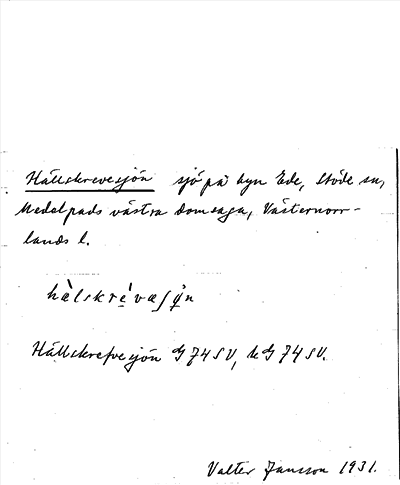 Hällskrevesjön sjö på byn Ede, Stöde sn,
Medelpads västra domsaga, Västernorr-
lands l.
Hällskrefvesjön G 74 SV, kG 74 SV.
Valter Jansson 1931.